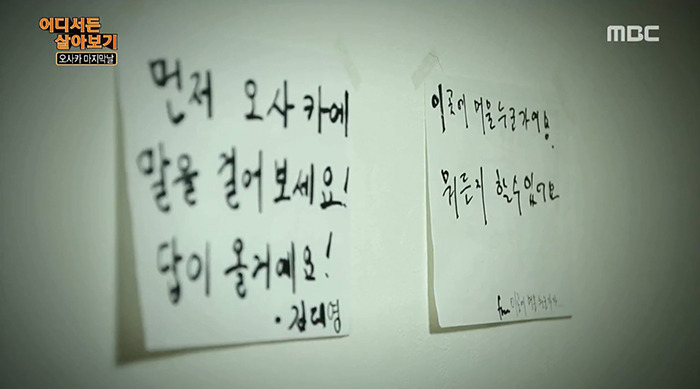 어디서든
살아보기
오사카 마지막날
MBC
먼저 오사카에
말을 걸어보세요!
답이 올거예요!
· 김대영
이곳에 머울 누군가에요.
뭐든지 할수있어요
from